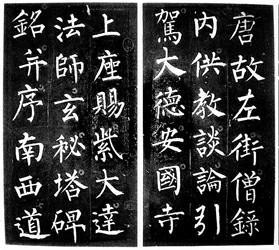 唐故左街僧錄
内供教談論引
駕大德安國寺
上座賜紫大達
法師玄秘塔碑
銘并序南西道